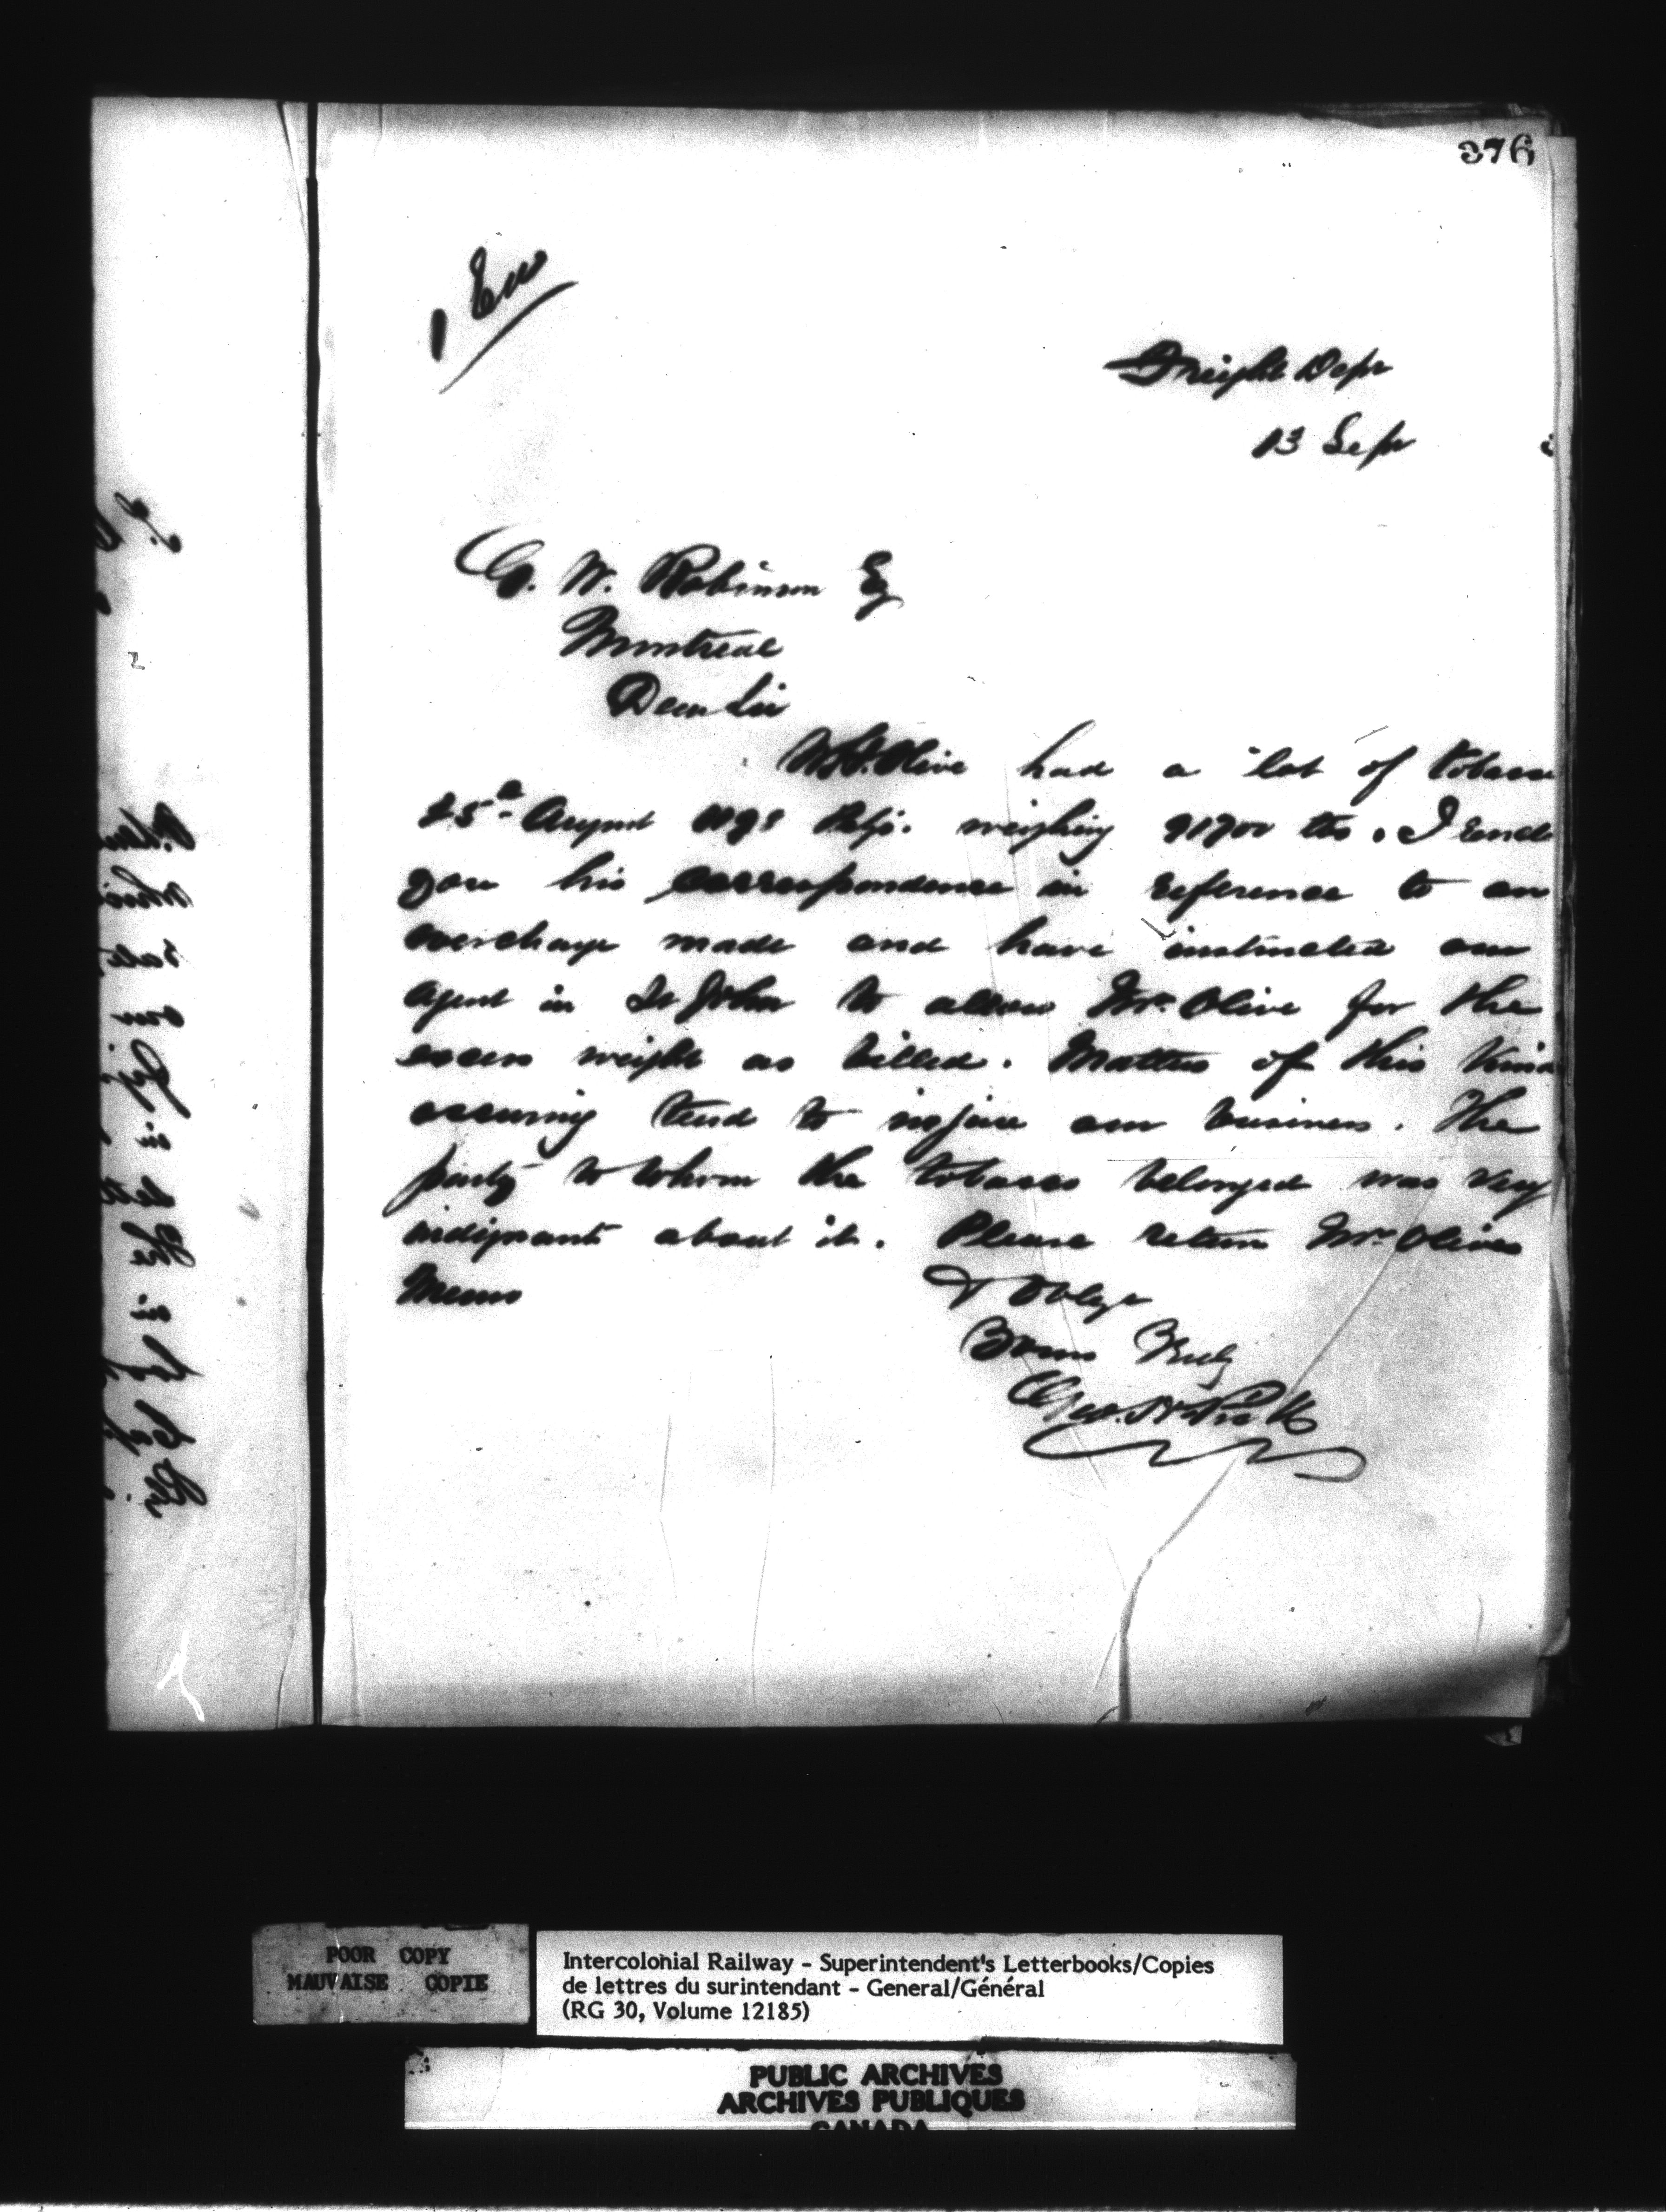 376
1 Enc
Freight Dept
13 Sept
G. W. Robinson Esq
Montreal
Dear Sir
W.H. Olive had a lot of tobacco
25th August weighing lbs. I send
you his correspondence in reference to an
overcharge made and have instructed our
agent in St John to allow Mr. Olive for the
excess weight as billed. Matters of this kind
occuring tend to injure our business. The
party to whom the tobacco belonged was very
indignant about it. Please return Mr. Olives
Memo
& Oblige
Yours Truly
Geo.
POOR COPY
MAUVAISE COPIE
Intercolonial Railway - Superintendent's Letterbooks/Copies
de lettres du surintendant - General/Général
(RG 30, Volume 12185)
PUBLIC ARCHIVES
ARCHIVES PUBLIQUES
CANADA